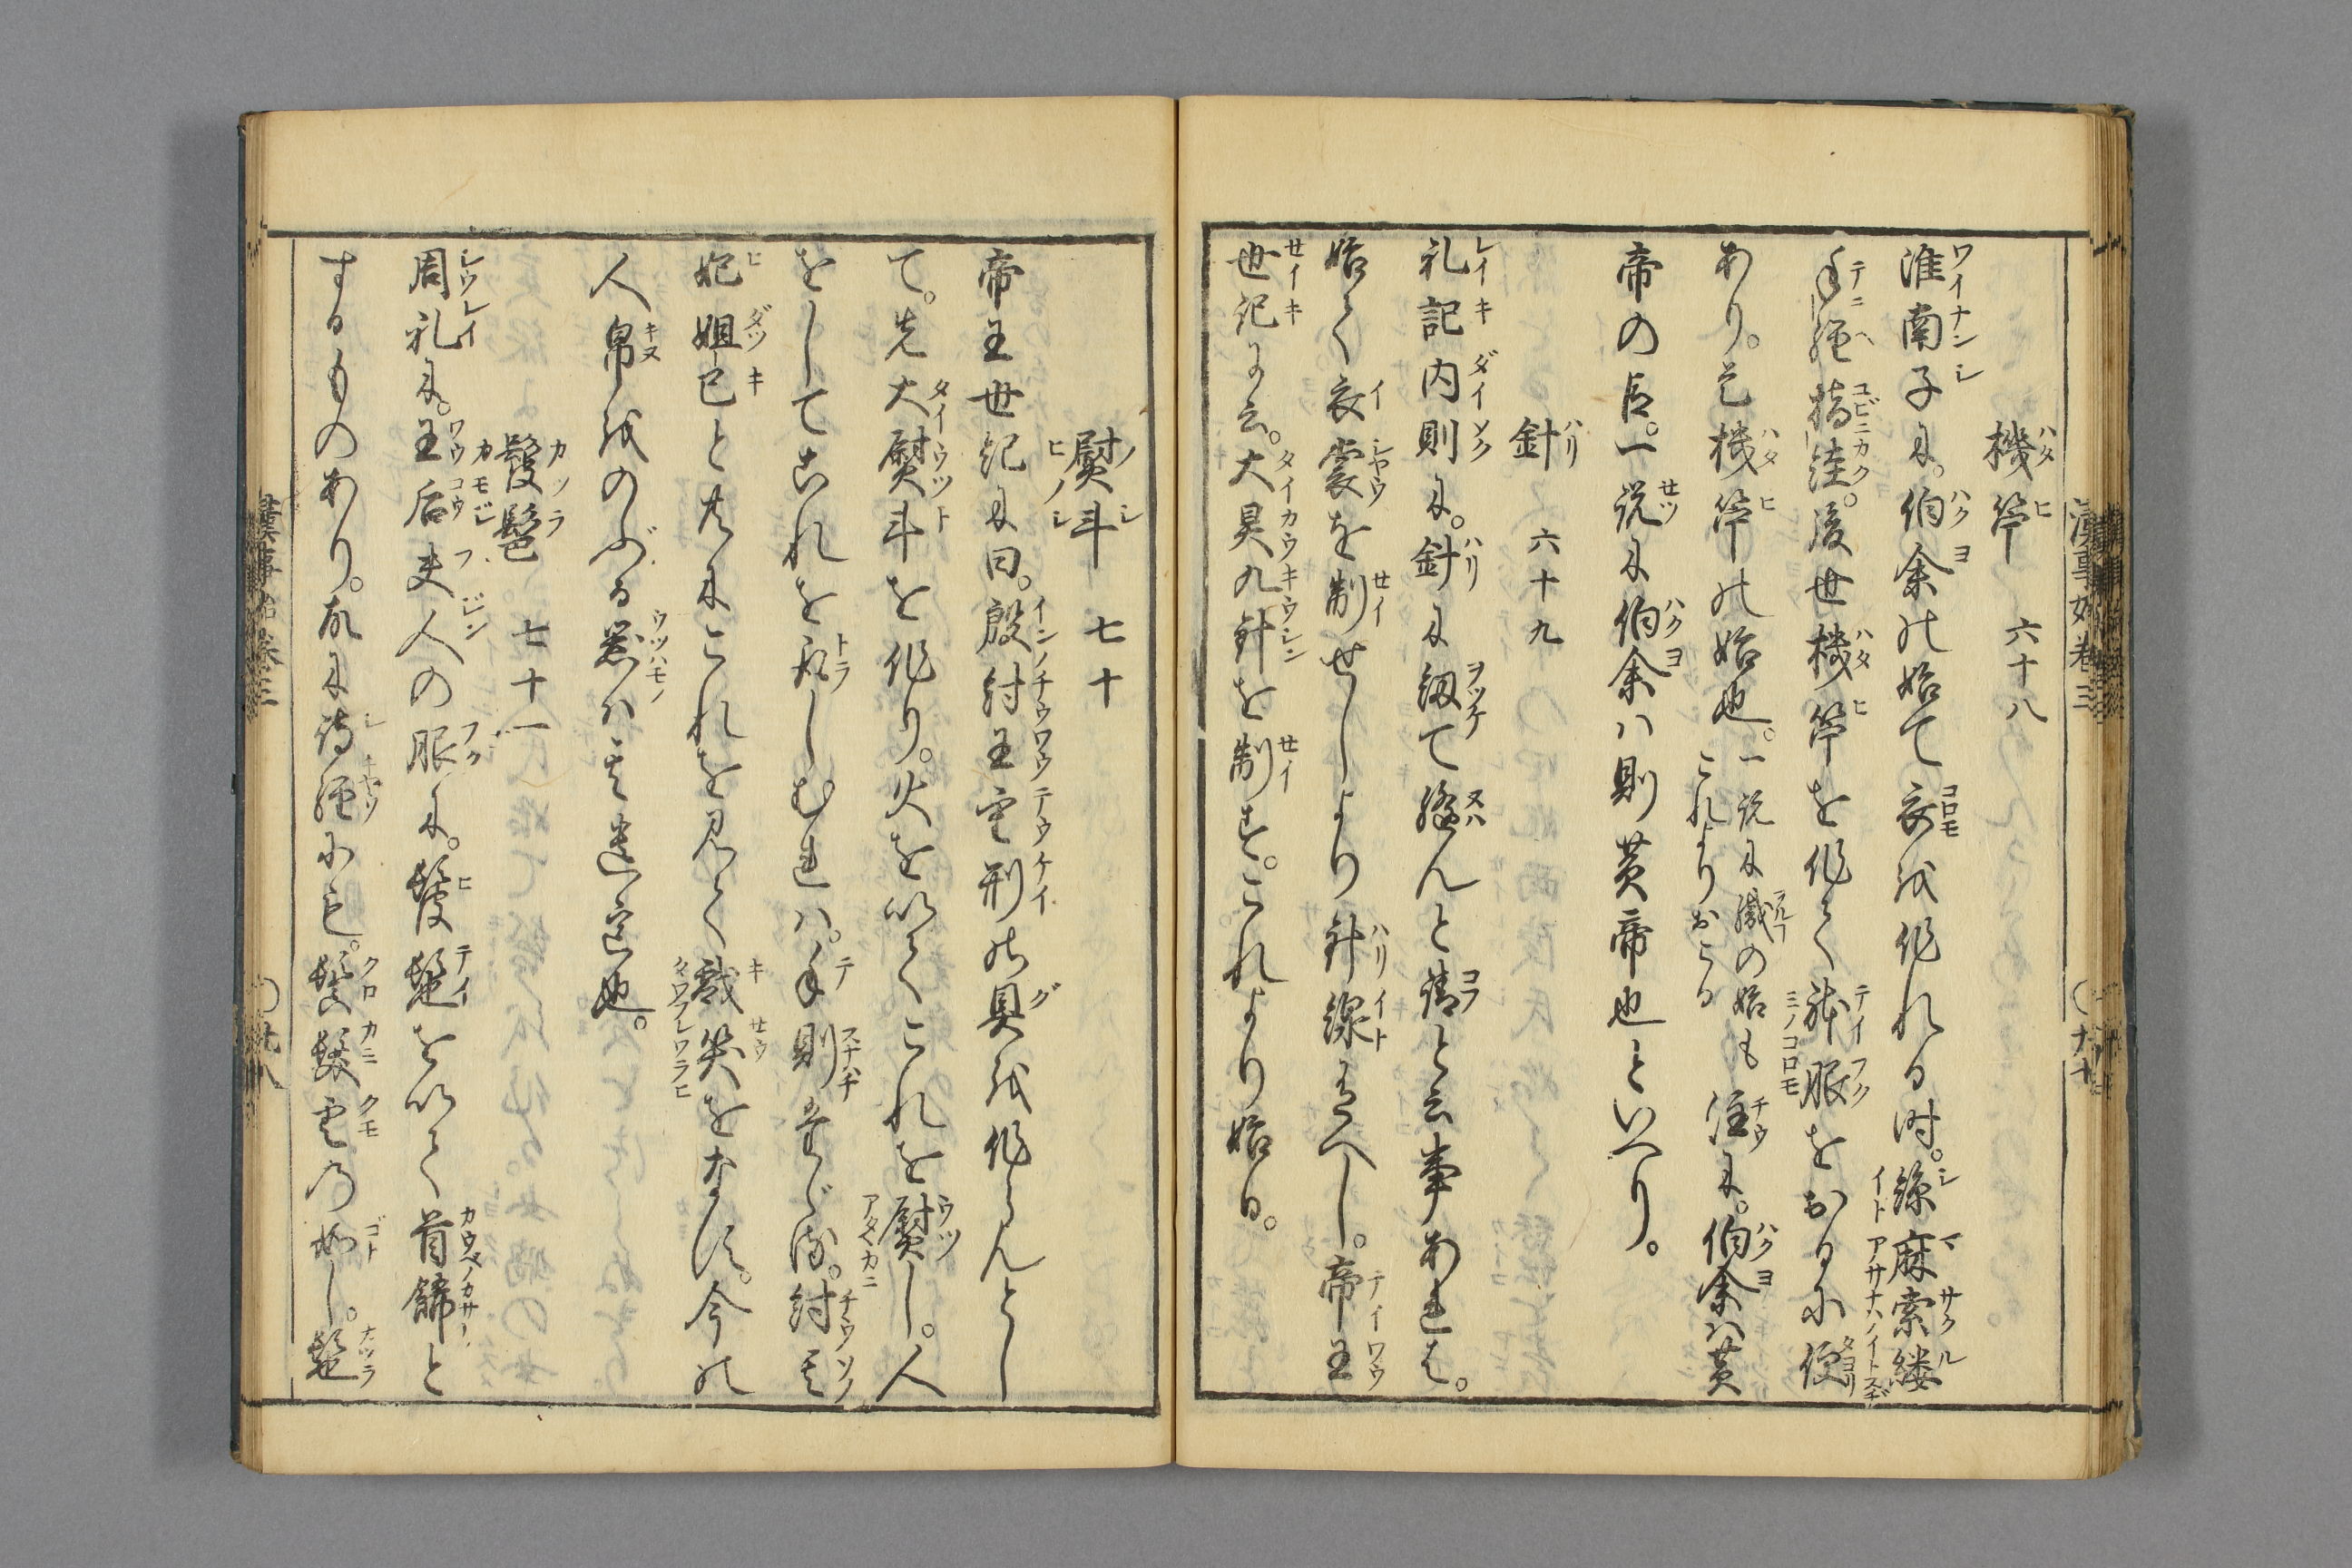 漢事始巻三
機筟 六十八
淮南子に。伯余の始て衣を作れる時。綜麻索縷
手経指挂。後世機筟を作りて䏻服をおるに便
あり。是機筟の始也。一説に織の始もこれよりおこる 注に。伯余ハ黄
帝の臣。一説に伯余ハ則黄帝也といへり。
針 六十九
礼記内則に。針に紉て縫んと請と云事あれば。
始て衣裳を制せしより針線有べし。帝王
世記に云。大昊九針を制す。これより始る。
熨斗 七十
帝王世紀に曰。殷紂王重刑の具を作らんとし
て。先大熨斗を作り。火を以てこれを熨し。人
をしてこれを取しむれハ。手則ち たゞる。紂其
妃妲己と共にこれを見て戯笑をなす。今の
人帛をのぶる器ハ其遺意也。
髲髢 七十一
周礼に。王后夫人の服に。髲髢を以て首餝と
するものあり。故に詩経にも。鬒髪雲の如し。髢
漢事始巻三